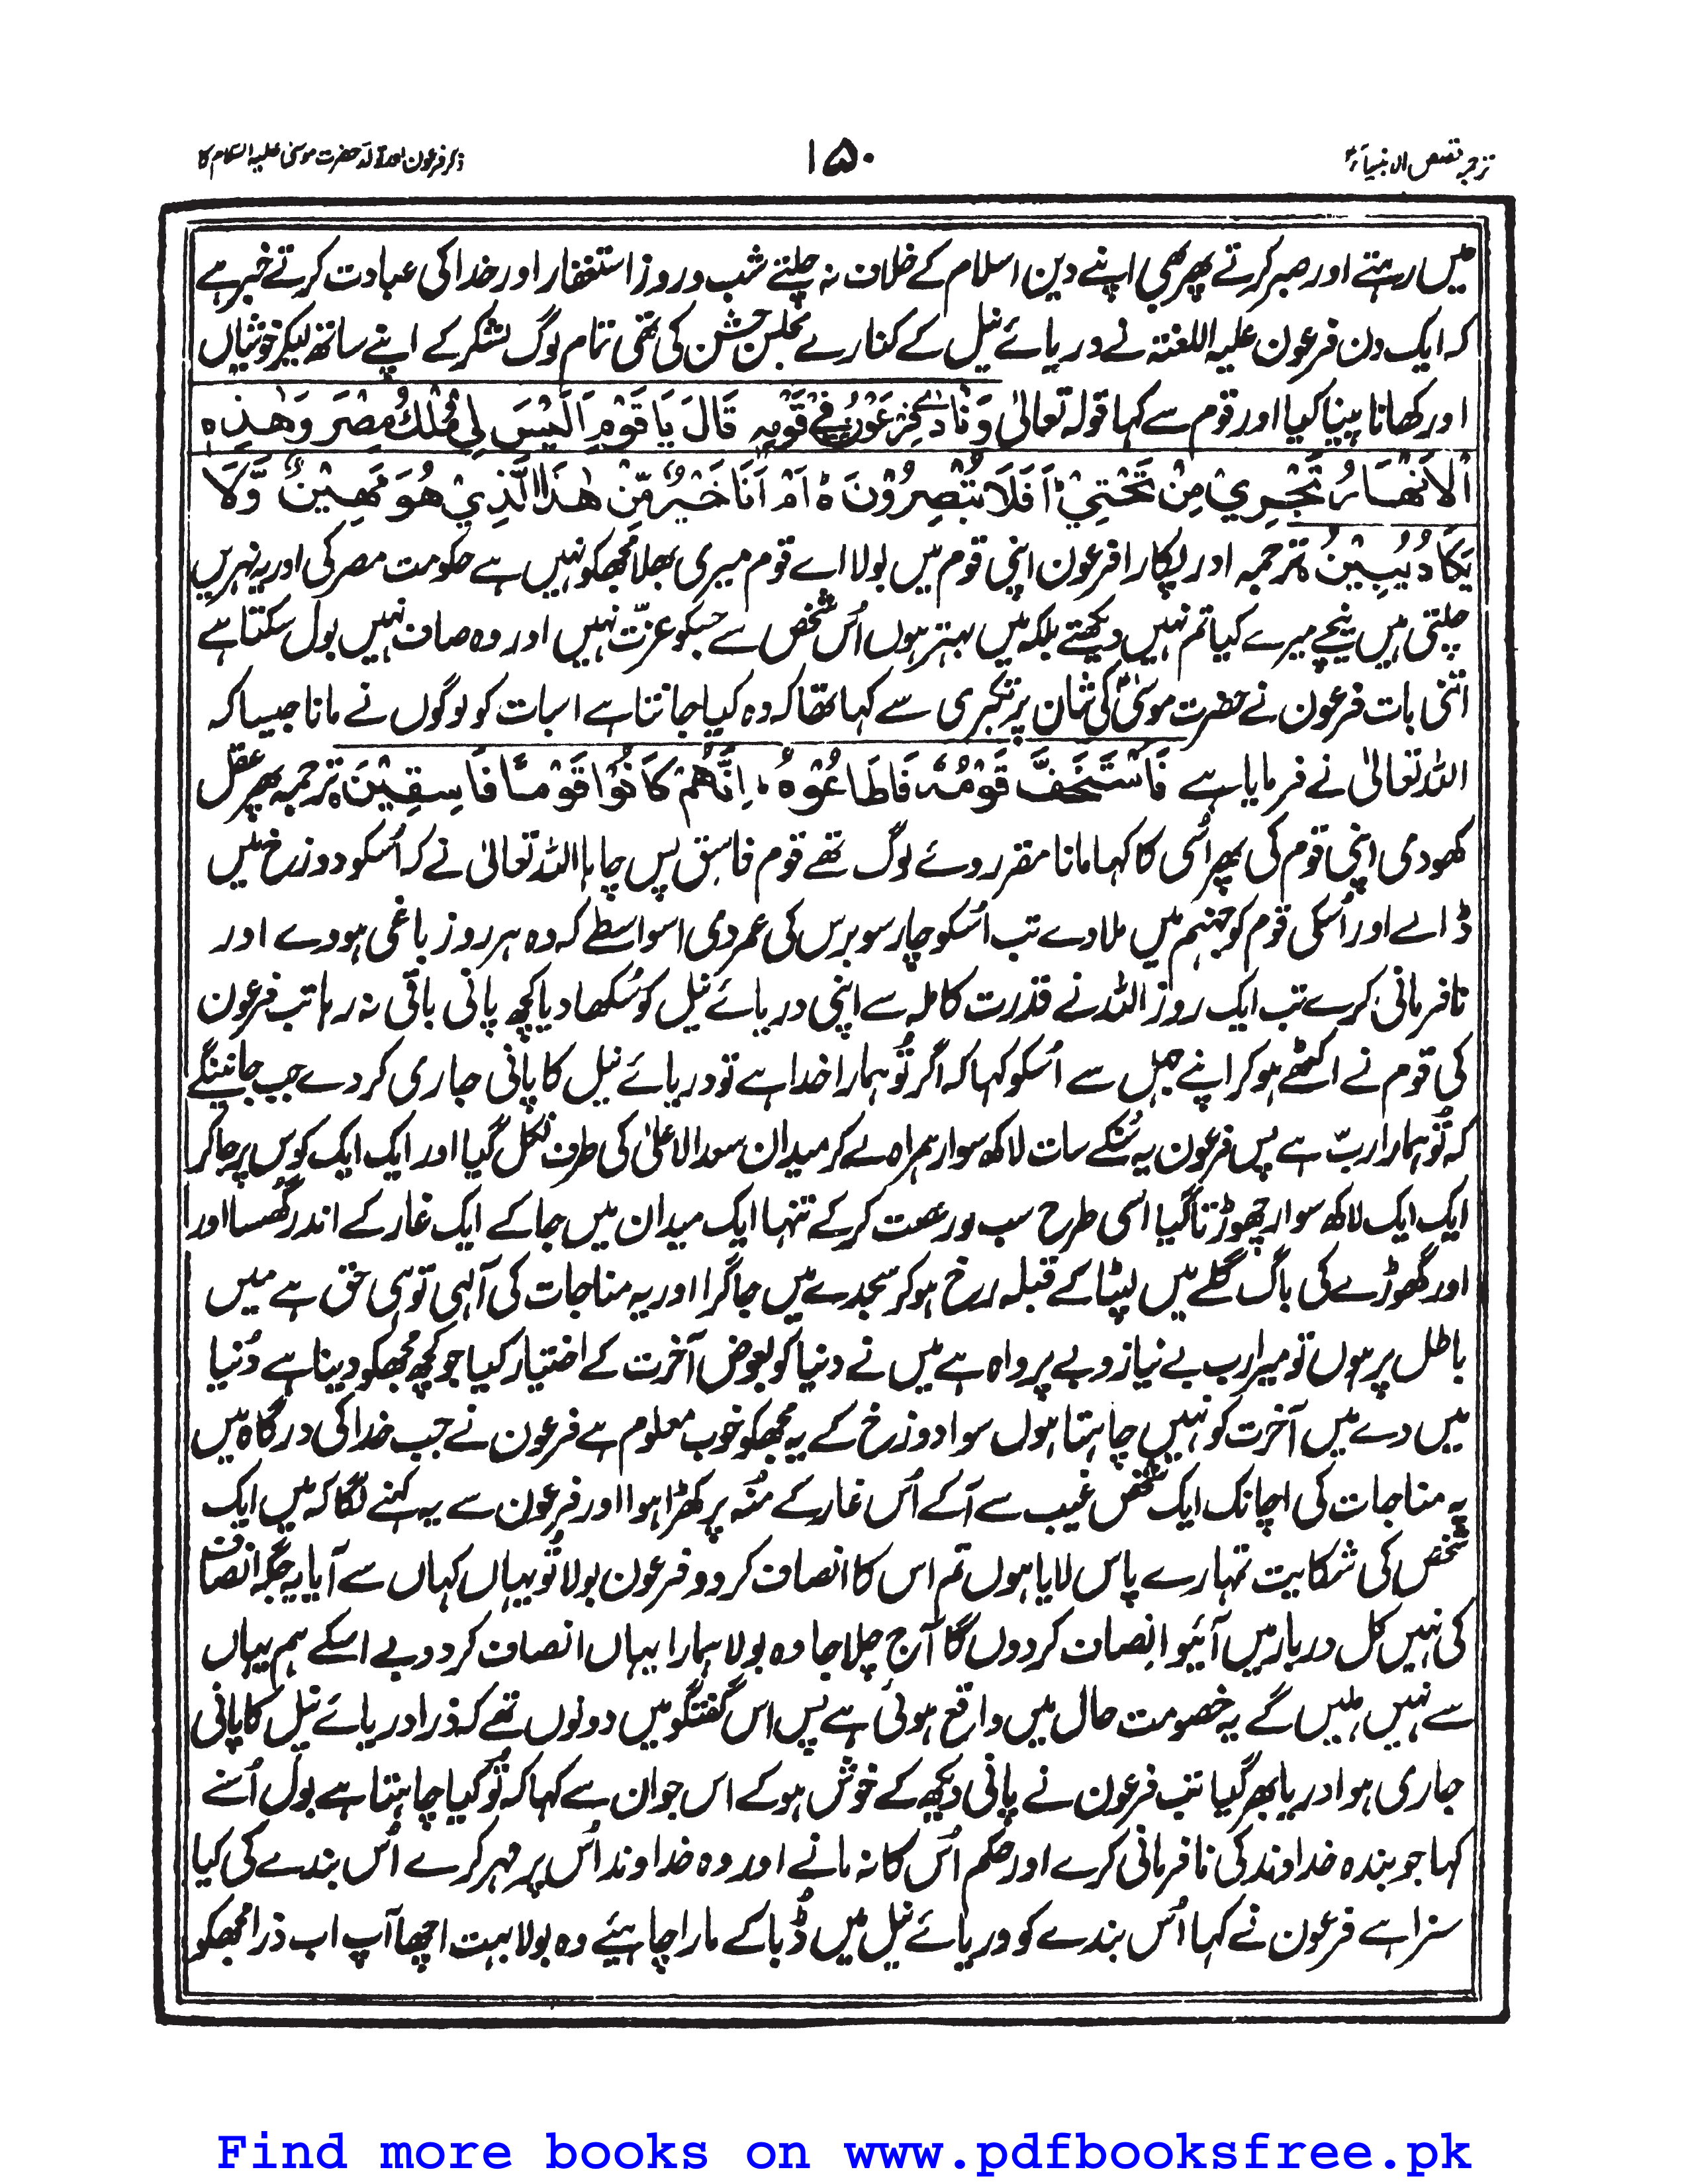 ترجمہ قصص الانبیاء
۱۵۰
ذکر فرعون اور تولد حضرت موسیٰ علیہ السلام کا
میں رہتے اور صبر کرتے پھر بھی اپنے دین اسلام کے خلاف نہ چلتے شب و روز استغفار اور خدا کی عبادت کرتے خبر ہے
کہ ایک دن فرعون علیہ اللعنتہ نے دریائے نیل کے کنارے مجلس جشن کی تھی تمام لوگ لشکر کے اپنے ساتھ لیکر خوشیاں
اور کھانا پینا کیا اور قوم سے کہا قولہ تعالیٰ وَنَادٰے فِرْعَوْنُ فِیْ قَوْمِہٖ قَالَ یَا قَوْمِ اَلَیْسَ لِیْ مُلْكُ مِصْرَ وَھٰذِہِ
الْاَنْھَارُ تَجْرِیْ مِنْ تَحْتِیْ اَفَلَا تُبْصِرُوْنَ ہ اَمْ اَنَا خَیْرٌ مِّنْ ھٰذَا الَّذِیْ ھُوَ مَھِیْنٌ وَّلَا
یَكَادُ یُبِیْنُ ترجمہ اور پکارا فرعون اپنی قوم میں بولا اے قوم میری بھلا مجھکو نہیں ہے حکومت مصر کی اور یہ نہریں
چلتی ہیں نیچے میرے کیا تم نہیں دیکھتے بلکہ میں بہتر ہوں اُس شخص سے جسکو عزّت نہیں اور وہ صاف نہیں بول سکتا ہے
اتنی بات فرعون نے حضرت موسیٰؑ کی شان پر تکبری سے کہا تھا کہ وہ کیا جانتا ہے اسبات کو لوگوں نے مانا جیسا کہ
اللہ تعالیٰ نے فرمایا ہے فَاسْتَخَفَّ قَوْمَہٗ فَاَطَاعُوْہُ اِنَّھُمْ كَانُوْا قَوْمًا فَاسِقِیْنَ ترجمہ پھر عقل
کھودی اپنی قوم کی پھر اُسی کا کہا مانا مقرر وے لوگ تھے قوم فاسق پس چاہا اللہ تعالیٰ نے کہ اُسکو دوزخ میں
ڈالے اور اُسکی قوم کو جہنم میں ملادے تب اُسکو چار سو برس کی عمر دی اسواسطے کہ وہ ہر روز باغی ہووے اور
نافرمانی کرے تب ایک روز اللہ نے قدرت کاملہ سے اپنی دریائے نیل کو سُکھا دیا کچھ پانی باقی نہ رہا تب فرعون
کی قوم نے اکٹھے ہوکر اپنے جہل سے اُسکو کہا کہ اگر تُو ہمارا خدا ہے تو دریائے نیل کا پانی جاری کردے جب جانینگے
کہ تُو ہمارا ربّ ہے پس فرعون یہ سُنکے سات لاکھ سوار ہمراہ لے کر میدان سعد الاعلیٰ کی طرف نکل گیا اور ایک ایک کوس پر جاکر
ایک ایک لاکھ سوار چھوڑتا گیا اسی طرح سب کو رخصت کرکے تنہا ایک میدان میں جاکے ایک غار کے اندر گھسا اور
اور گھوڑے کی باگ گلے میں لپٹا کے قبلہ رخ ہوکر سجدے میں جاگرا اور یہ مناجات کی آلہی تو ہی حق ہے میں
باطل پر ہوں تو میرا رب بے نیاز و بے پرواہ ہے میں نے دنیا کو بعوض آخرت کے اختیار کیا جو کچھ مجھکو دینا ہے دُنیا
میں دے میں آخرت کو نہیں چاہتا ہوں سوا دوزخ کے یہ مجھکو خوب معلوم ہے فرعون نے جب خدا کی درگاہ میں
یہ مناجات کی اچانک ایک شخص غیب سے آکے اُس غار کے مُنہ پر کھڑا ہوا اور فرعون سے یہ کہنے لگا کہ میں ایک
شخص کی شکایت تمہارے پاس لایا ہوں تم اس کا انصاف کردو فرعون بولا تُو یہاں کہاں سے آیا یہ جگہ انصاف
کی نہیں کل دربار میں آئیو انصاف کردوں گا آج چلا جا وہ بولا ہمارا یہاں انصاف کردو بے اسکے ہم یہاں
سے نہیں ہلیں گے یہ خصومت حال میں واقع ہوئی ہے پس اس گفتگو میں دونوں تھے کہ ذرا دریائے نیل کا پانی
جاری ہوا دریا بھر گیا تب فرعون نے پانی دیکھ کے خوش ہوکے اس جوان سے کہا کہ تُو کیا چاہتا ہے بول اُسنے
کہا جو بندہ خداوند کی نافرمانی کرے اور حکم اُس کا نہ مانے اور وہ خداوند اُس پر مہر کرے اُس بندے کی کیا
سزا ہے فرعون نے کہا اُس بندے کو دریائے نیل میں ڈُبا کے مارا چاہئیے وہ بولا بہت اچھا آپ اب ذرا مجھکو
Find more books on www.pdfbooksfree.pk